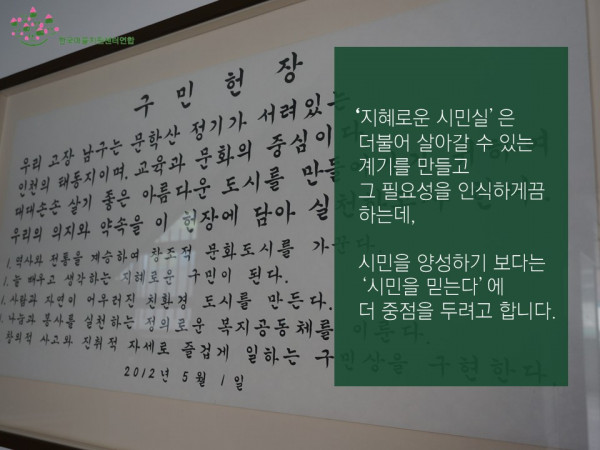 한국마을지원센터연합
구민헌장
우리 고장 남구는 문학산 정기가 서려있는
인천의 태동지이며, 교육과 문화의 중심이다
대대손손 살기 좋은 아름다운 도시를 만들어
우리의 의지와 약속을 이 헌장에 담아 실천
1. 역사와 전통을 계승하여 창조적 문화도시를 가꾼다.
1. 늘 배우고 생각하는 지혜로운 구민이 된다.
1. 사람과 자연이 어우러진 친환경 도시를 만든다.
1. 나눔과 봉사를 실천하는 정의로운 복지공동체를 이룬다.
창의적 사고와 진취적 자세로 즐겁게 일하는 구민상을 구현한다.
2012년 5월 1일
‘지혜로운 시민실’은
더불어 살아갈 수 있는
계기를 만들고
그 필요성을 인식하게끔
하는데,
시민을 양성하기 보다는
‘시민을 믿는다’에
더 중점을 두려고 합니다.